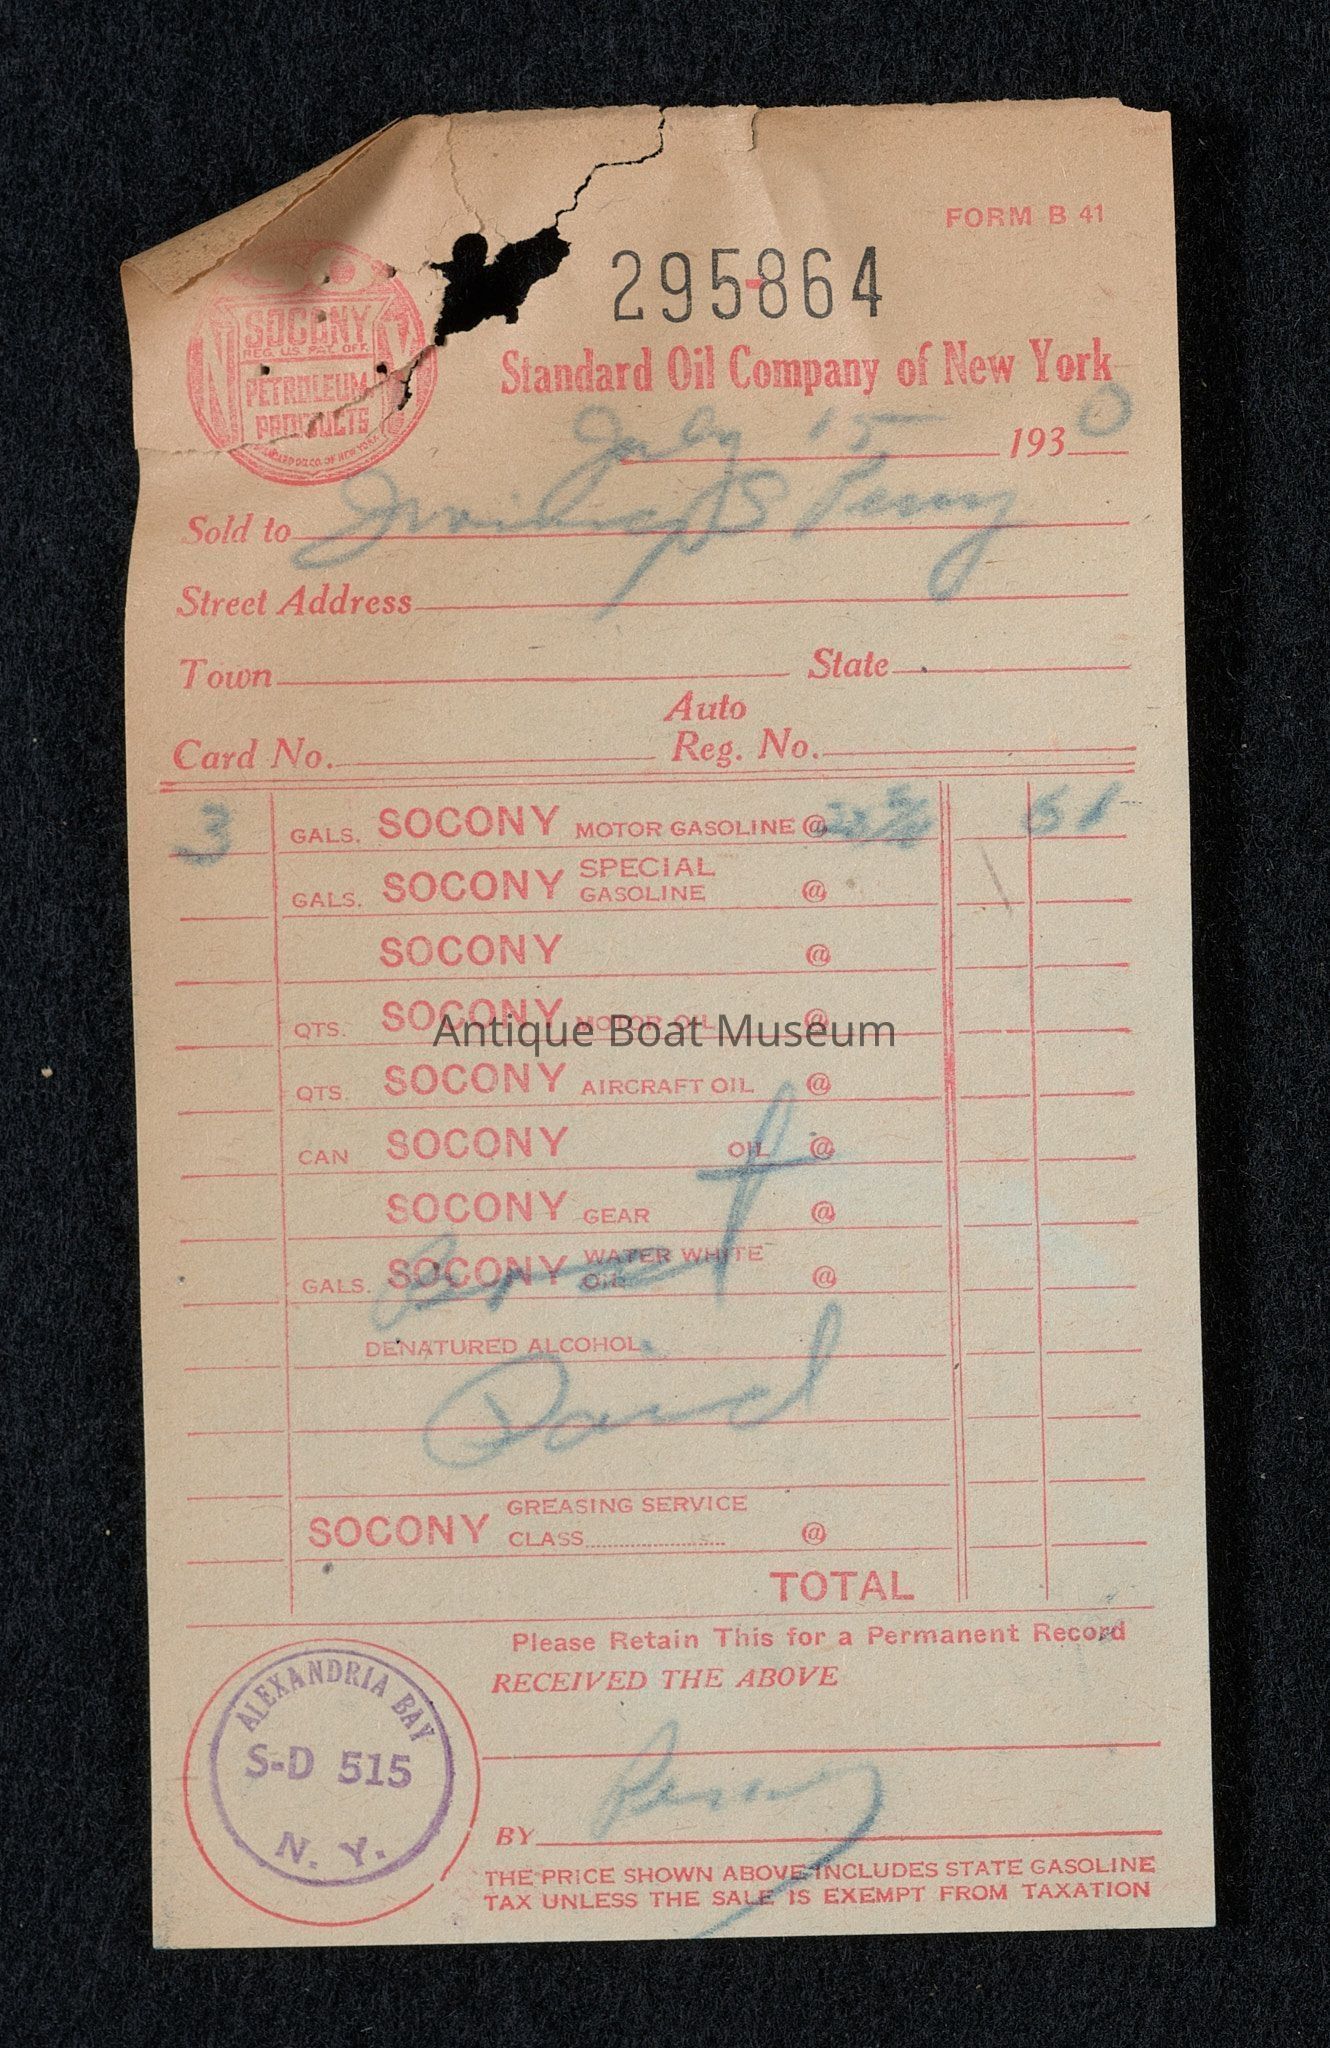 FORM B 41
295864
SOCONY
REG. U.S. PAT. OFF.
PETROLEUM
PRODUCTS
STANDARD OIL CO. OF NEW YORK
Standard Oil Company of New York
July 15 1930
Sold to Irving S Perry
Street Address
Town State
Auto
Card No. Reg. No.
3 GALS. SOCONY MOTOR GASOLINE @ 61
GALS. SOCONY SPECIAL GASOLINE @
SOCONY @
QTS. SOCONY MOTOR OIL @
Antique Boat Museum
QTS. SOCONY AIRCRAFT OIL @
CAN SOCONY OIL @
SOCONY GEAR @
GALS. SOCONY WATER WHITE OIL @
Boat
DENATURED ALCOHOL
Paid
GREASING SERVICE
SOCONY CLASS @
TOTAL
Please Retain This for a Permanent Record
RECEIVED THE ABOVE
ALEXANDRIA BAY
S-D 515
N. Y.
BY Perry
THE PRICE SHOWN ABOVE INCLUDES STATE GASOLINE
TAX UNLESS THE SALE IS EXEMPT FROM TAXATION